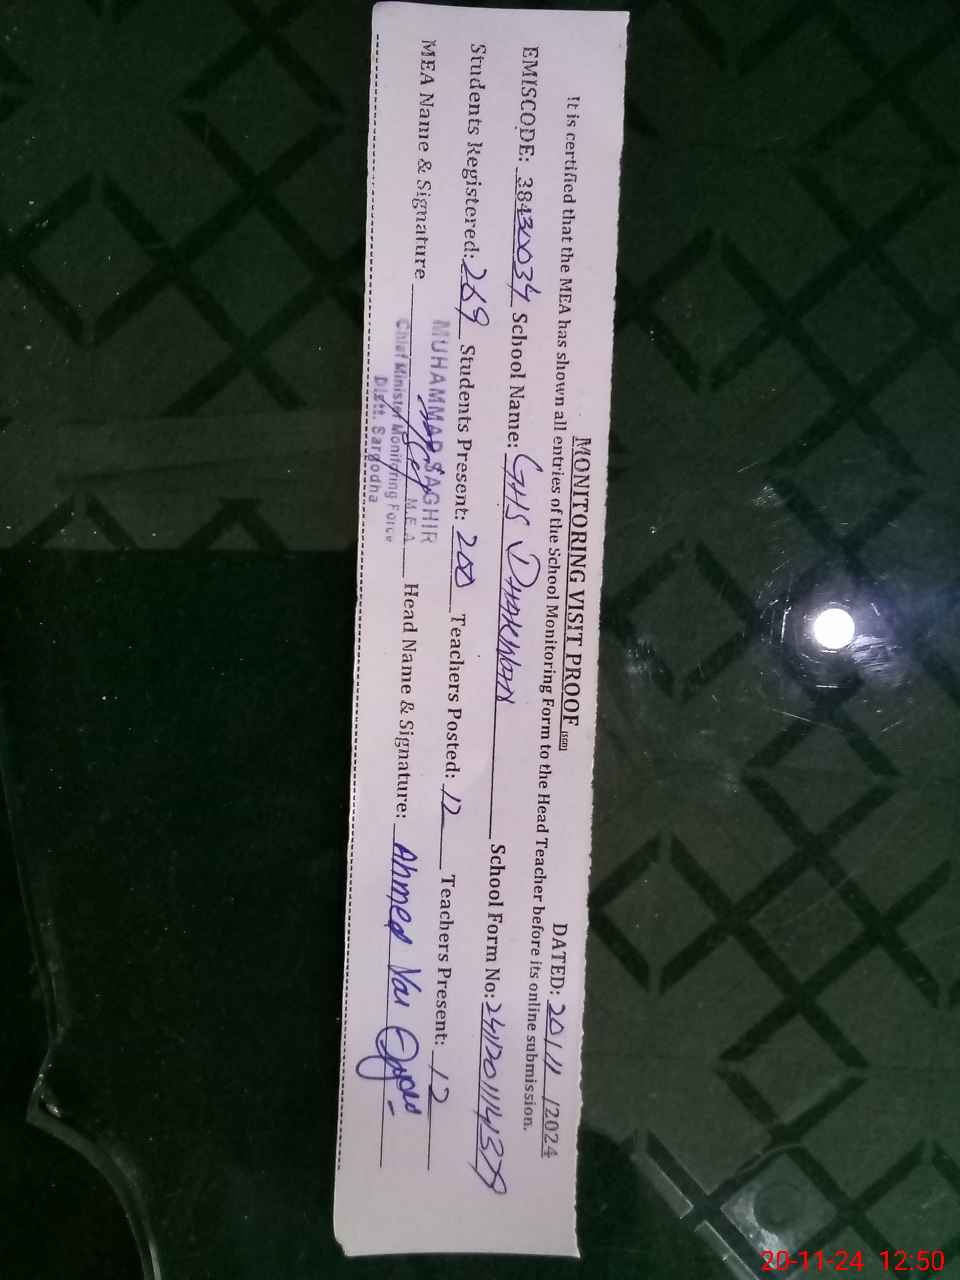 MONITORING VISIT PROOF (SGD)
DATED: 20/11/2024
It is certified that the MEA has shown all entries of the School Monitoring Form to the Head Teacher before its online submission.
EMISCODE: 38430034 School Name: GHS DHAKWAN School Form No:
Students Registered: 269 Students Present: 200 Teachers Posted: 12 Teachers Present: 12
MEA Name & Signature Head Name & Signature: Ahmed Yar
MUHAMMAD SAGHIR
M.E.A
Chief Minister Monitoring Force
Distt. Sargodha
20-11-24 12:50